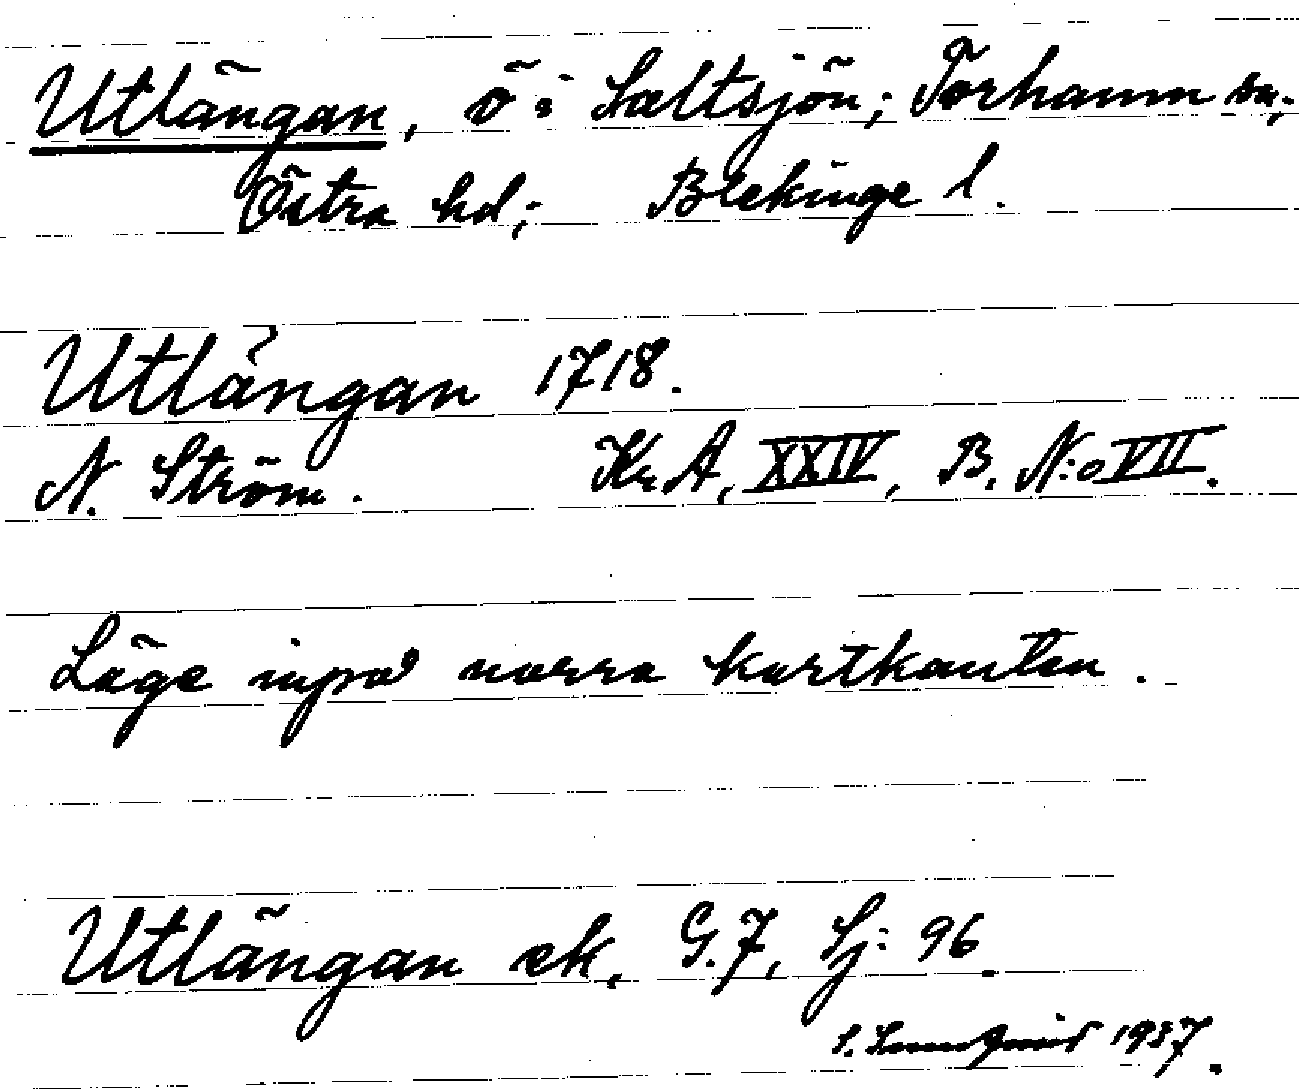 Utlängan, ö i Saltsjön; Torhamn sn;
Östra hd; Blekinge l.
Utlängan 1718.
N. Ström. Kr.A, XXIV, B. N:o VII.
Läge inpå norra kartkanten.
Utlängan ek. G.7, Sj: 96.
1937.